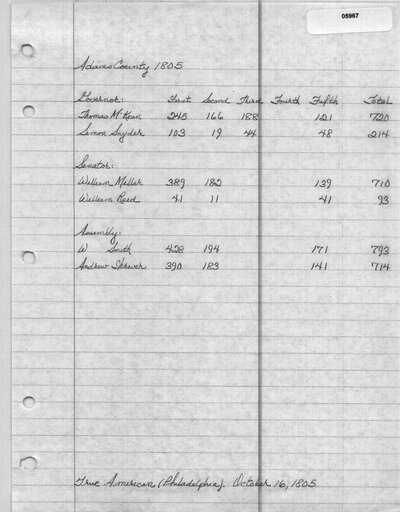 05967
Adams County 1805
Governor: First Second Third Fourth Fifth Total
Thomas McKean 245 166 188 121 720
Simon Snyder 103 19 44 48 214
Senator:
William Miller 389 182 139 710
William Reed 41 11 41 93
Assembly:
W Smith 428 194 171 793
Andrew Shriver 390 183 141 714
True American (Philadelphia). October 16, 1805